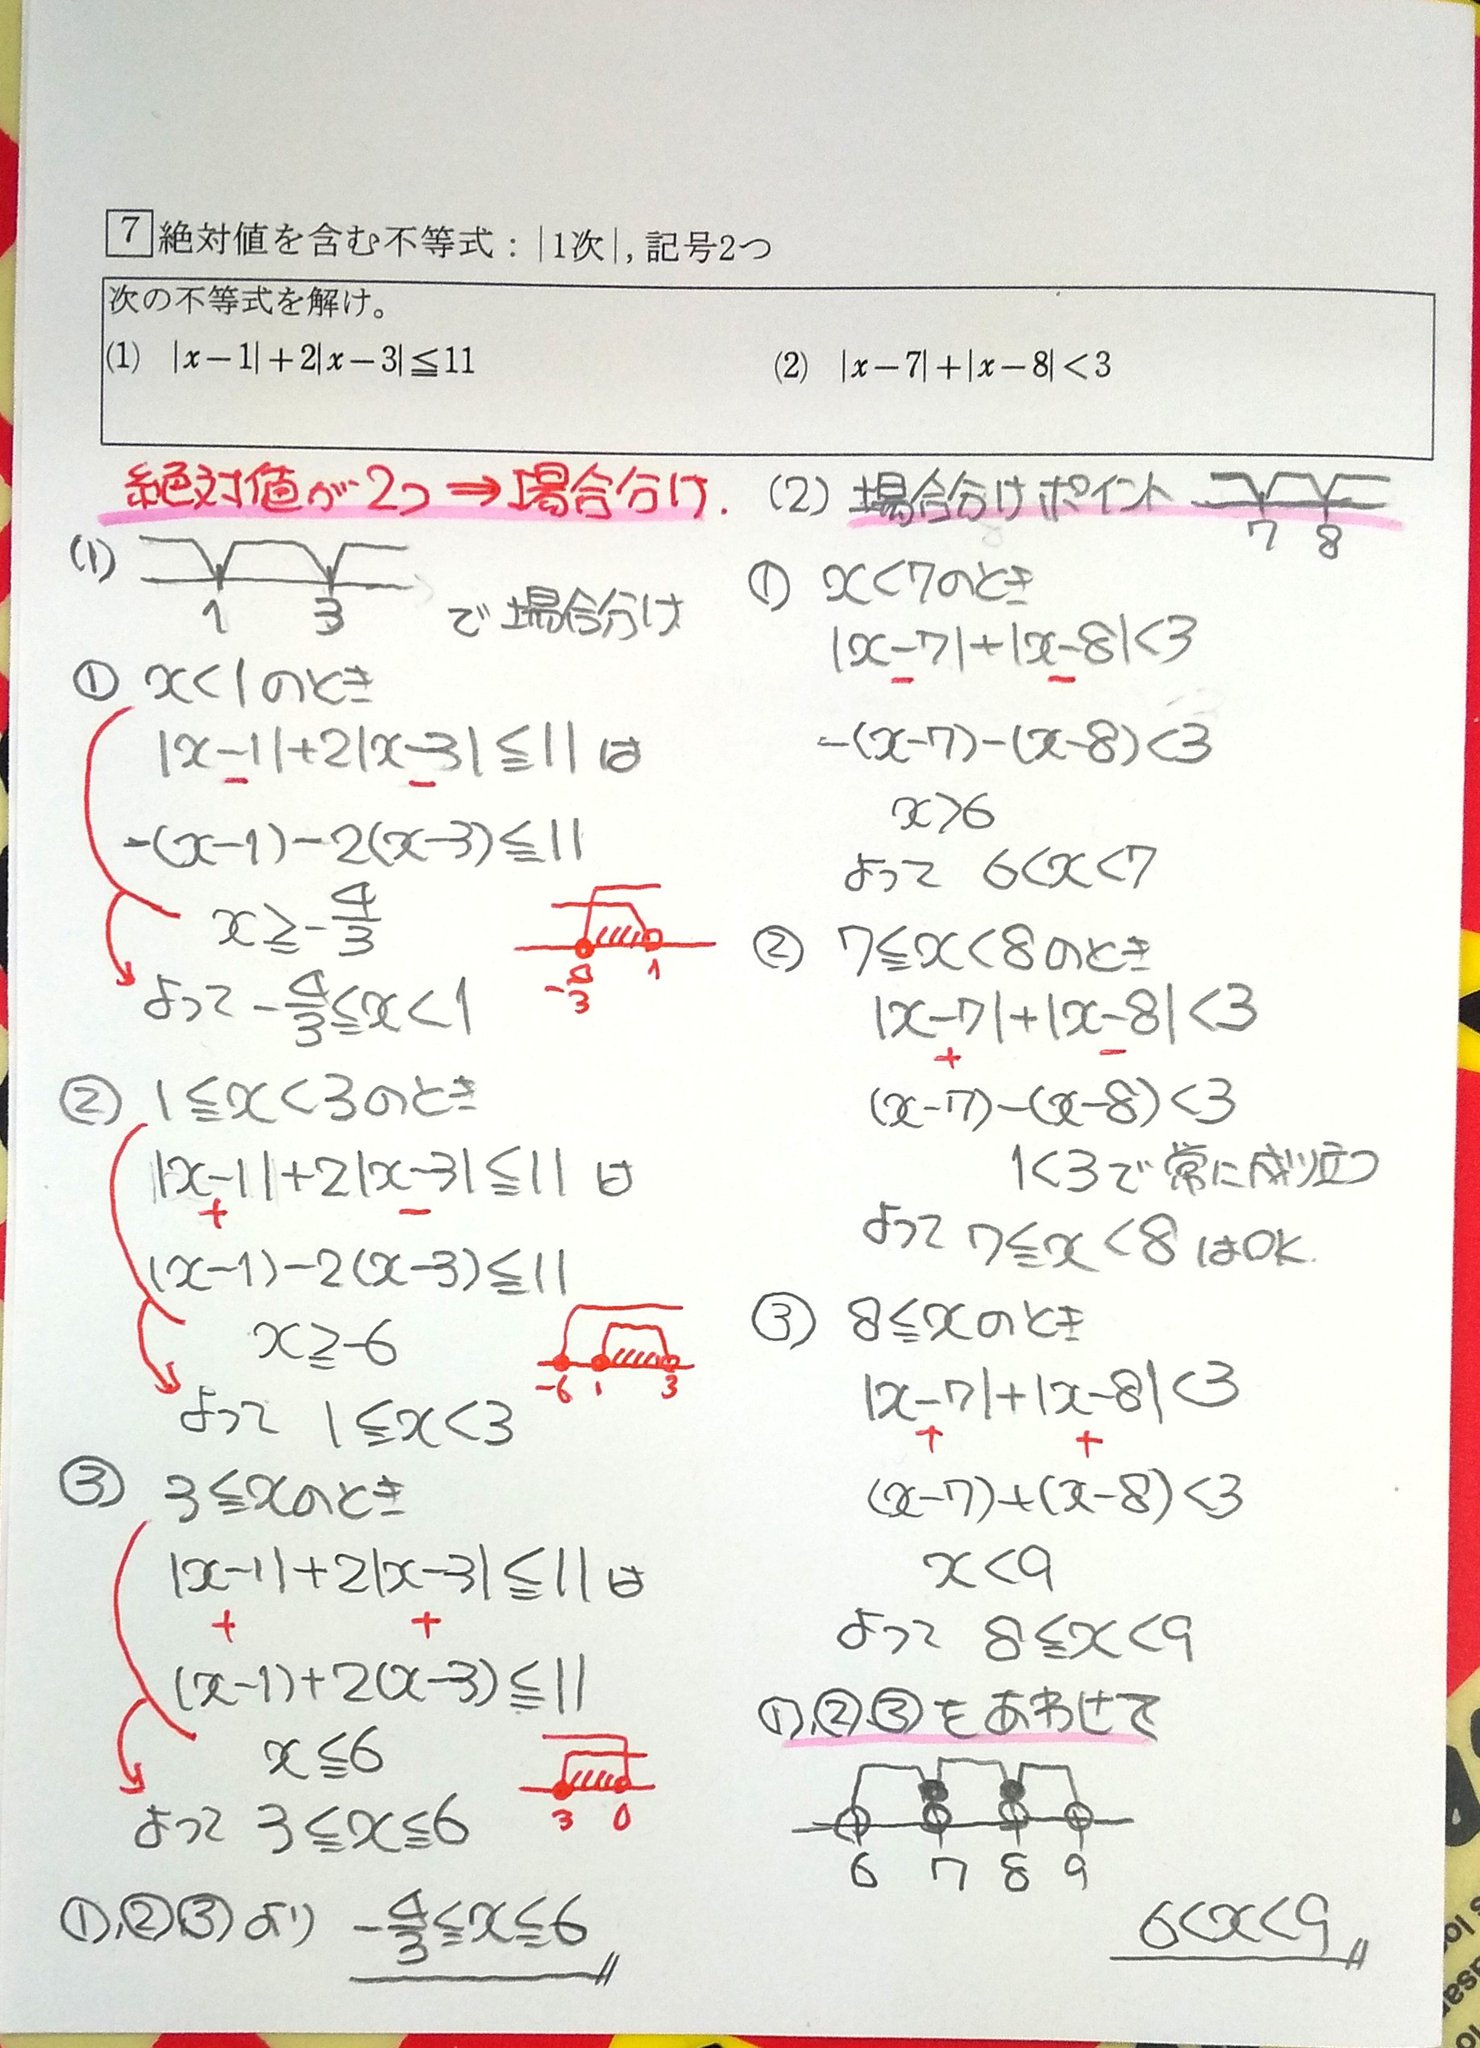 7 絶対値を含む不等式：|1次|, 記号2つ
次の不等式を解け。
(1) |x−1|+2|x−3|≦11
(2) |x−7|+|x−8|<3
絶対値が2つ⇒場合分け.
(1)
1 3 で場合分け
① x<1のとき
|x−1|+2|x−3|≦11は
− −
−(x−1)−2(x−3)≦11
x≧−4/3
−4/3 1
よって −4/3≦x<1
② 1≦x<3のとき
|x−1|+2|x−3|≦11は
+ −
(x−1)−2(x−3)≦11
x≧−6
−6 1 3
よって 1≦x<3
③ 3≦xのとき
|x−1|+2|x−3|≦11は
+ +
(x−1)+2(x−3)≦11
x≦6
3 0
よって 3≦x≦6
①,②,③より −4/3≦x≦6
(2) 場合分けポイント
7 8
① x<7のとき
|x−7|+|x−8|<3
− −
−(x−7)−(x−8)<3
x>6
よって 6<x<7
② 7≦x<8のとき
|x−7|+|x−8|<3
+ −
(x−7)−(x−8)<3
1<3で常に成り立つ
よって 7≦x<8はOK.
③ 8≦xのとき
|x−7|+|x−8|<3
+ +
(x−7)+(x−8)<3
x<9
よって 8≦x<9
①,②,③をあわせて
6 7 8 9
6<x<9